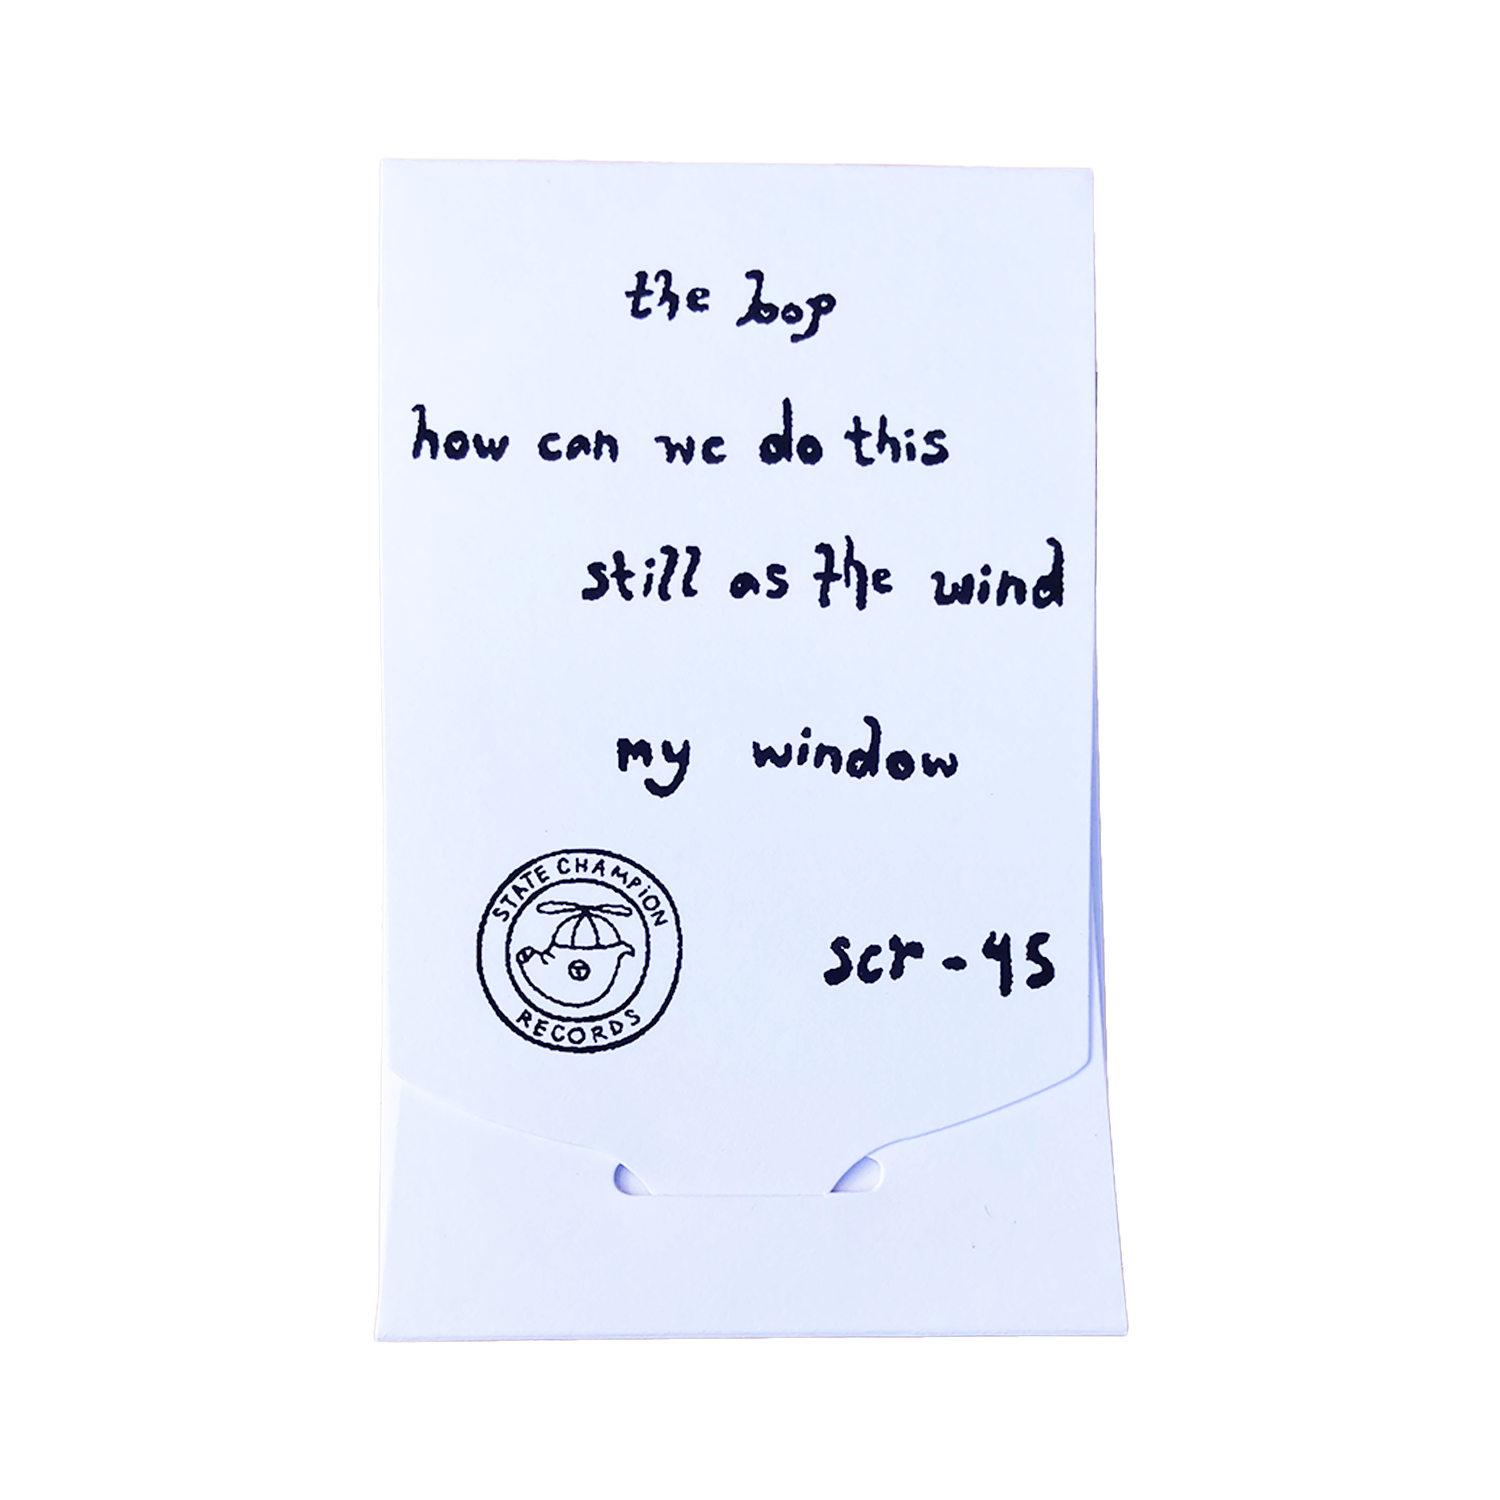 the bop
how can we do this
still as the wind
my window
STATE CHAMPiON
RECORDS
scr-45